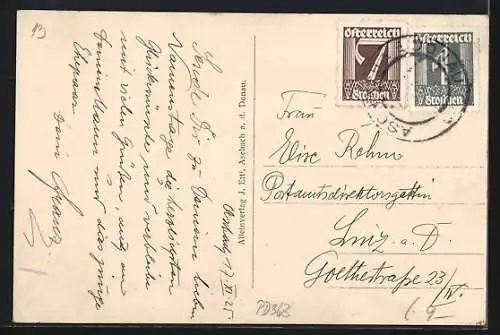 19
Aschach 17. XI. 25
Sende Dir zu Deinem lieben
Namenstage die herzlichsten
Glückwünsche und verbleibe
mit vielen Grüßen, auch an
Deinen Mann und das junge
Ehepaar
Dein Franz.
Alleinverlag J. Ertl, Aschach a. d. Donau.
Österreich
7
Groschen
Österreich
1
Groschen
Frau
Elise Rohm
Postamtsdirektorsgattin
Linz a. D.
Goethestraße 23/
IV.
PD363